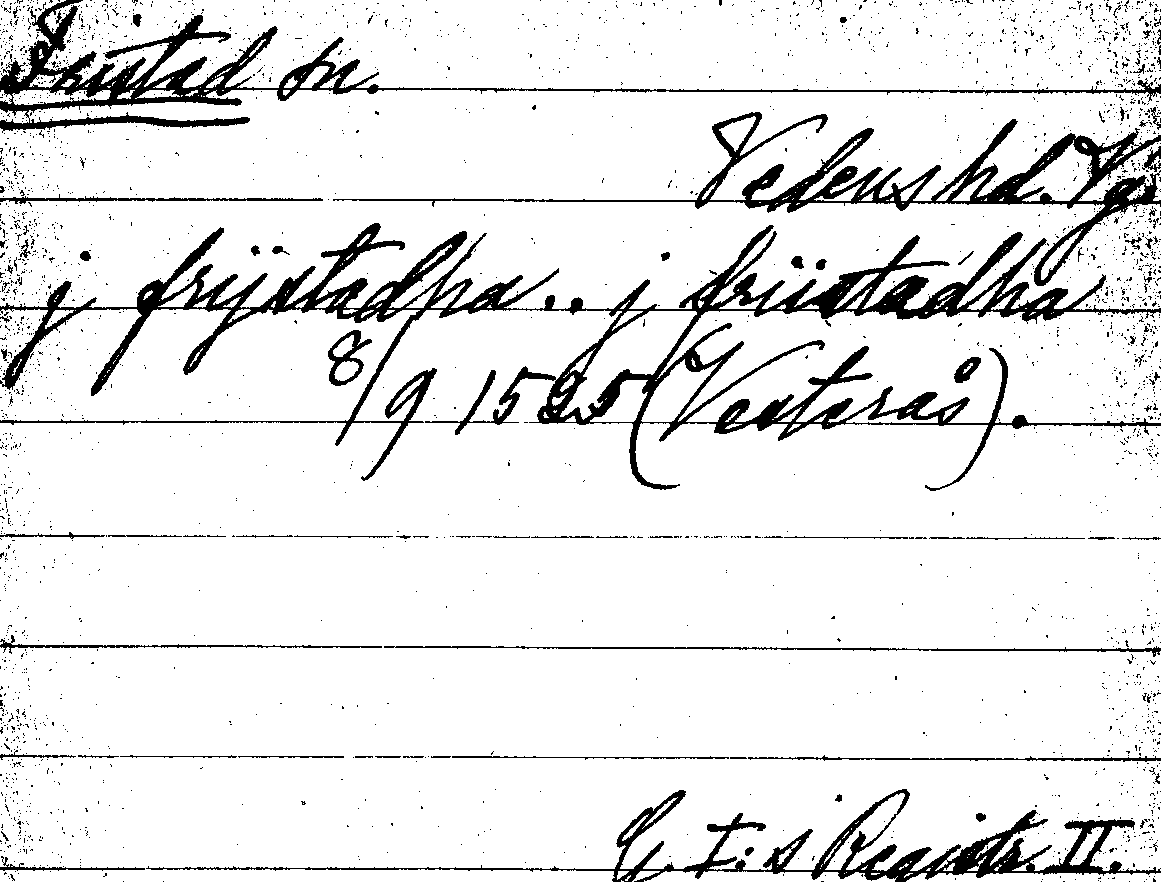 Fristad sn.
Vedens hd. Vg.
j frijstadha.. j friistadha
8/9 1525 (Vesterås).
G. I:s Registr. II.